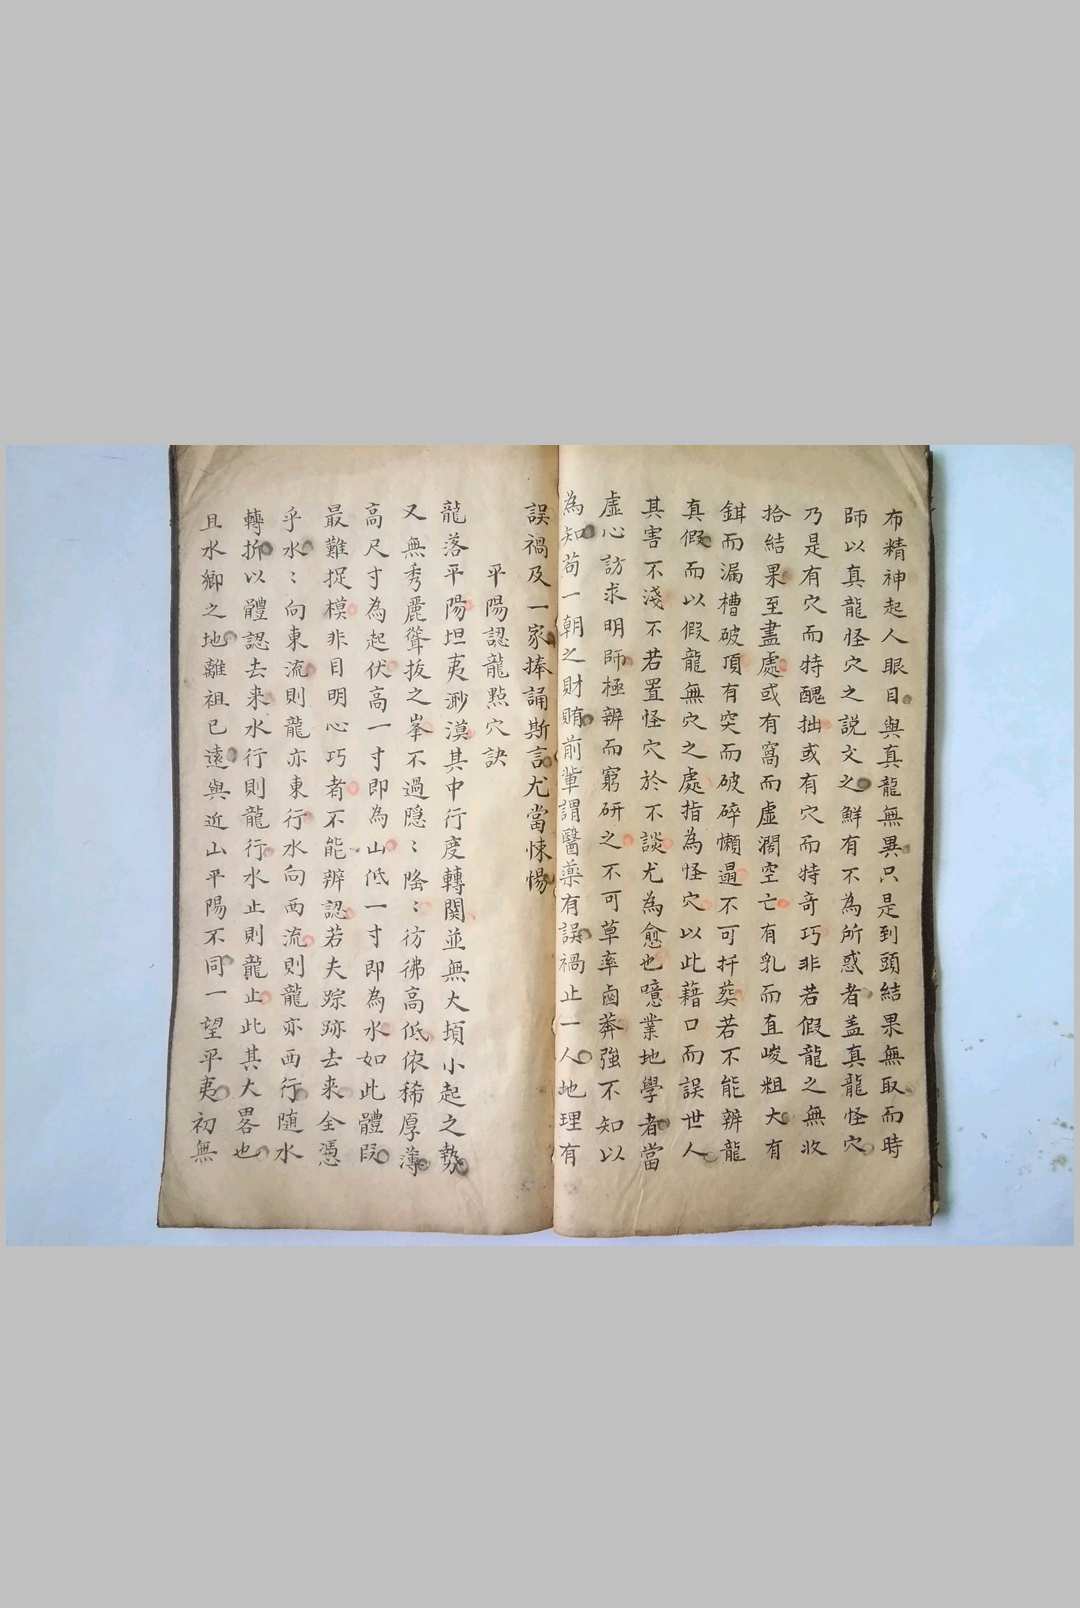 布精神起人眼目與真龍無異只是到頭結果無取而時
師以真龍怪穴之説文之鮮有不為所惑者盖真龍怪穴
乃是有穴而特醜拙或有穴而特奇巧非若假龍之無收
拾結果至盡處或有窩而虛濶空亡有乳而直峻粗大有
鉗而漏槽破頂有突而破碎懶遢不可扦葬若不能辨龍
真假而以假龍無穴之處指為怪穴以此藉口而誤世人
其害不淺不若置怪穴於不談尤為愈也噫業地學者當
虛心訪求明師極辨而窮研之不可草率鹵莽強不知以
為知苟一朝之財賄前輩謂醫藥有誤禍止一人地理有
誤禍及一家捧誦斯言尤當悚惕
平陽認龍點穴訣
龍落平陽坦夷渺漠其中行度轉関並無大頃小起之勢
又無秀麗聳抜之峯不過隱〻隆〻彷彿高低依稀厚薄
高尺寸為起伏高一寸即為山低一寸即為水如此體段
最難捉模非目明心巧者不能辨認若夫踪跡去来全憑
乎水〻向東流則龍亦東行水向西流則龍亦西行隨水
轉折以體認去来水行則龍行水止則龍止此其大畧也
且水鄉之地離祖已遠與近山平陽不同一望平夷初無